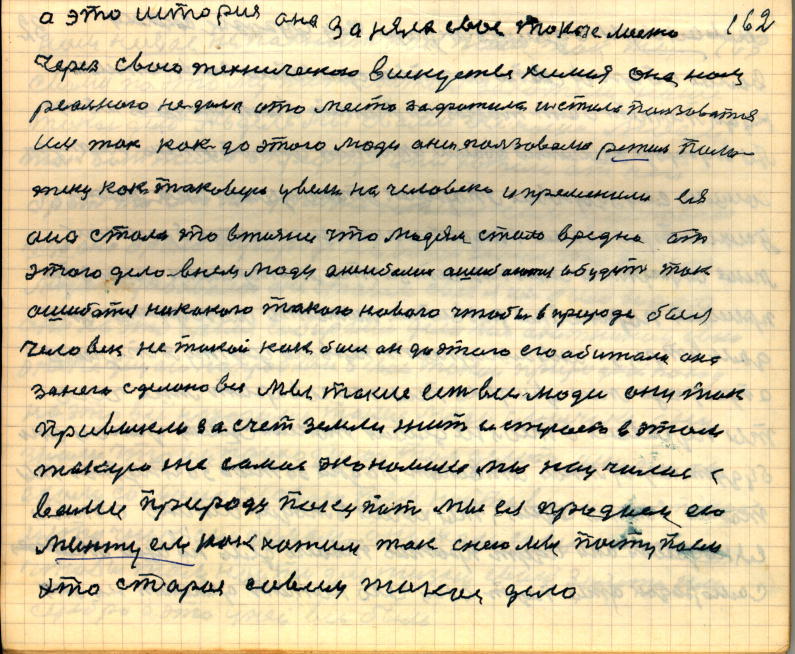 а это история она заняла свое такое место 162
через свого технического в искуства химия она нам
реального не дала это место захватила и стала ползоватся
им так как до этого люди они ползовалис
как таковую увели на человека и применили ея
она стала что людям стало вредно от
этого дело в нем люди ошибалис ошибаются и будут так
ошибатся никакого такого нового чтобы в природе был
человек не такой как был он до этого его обитала она
за него сделано вся мы такие есть все люди они так
привыкли за счет земли жит и строит в этом
такую же самая экономику мы научилис с
вами природу покупат мы ея продаем ею
как хотим так с нею мы поступаем
это старая совсем такое дело